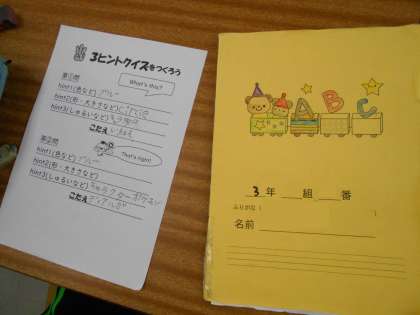 3ヒントクイズをつくろう
What's this?
第①問
hint1(色など) ブルー
hint2(形・大きさなど)
hint3(しゅるいなど)
こたえ
That's right!
第②問
hint1(色など) ブルー
hint2(形・大きさなど)
hint3(しゅるいなど) キャラクター ポケモン
こたえ ディアルガ
ABC
3年 組 番
ふりがな
名前